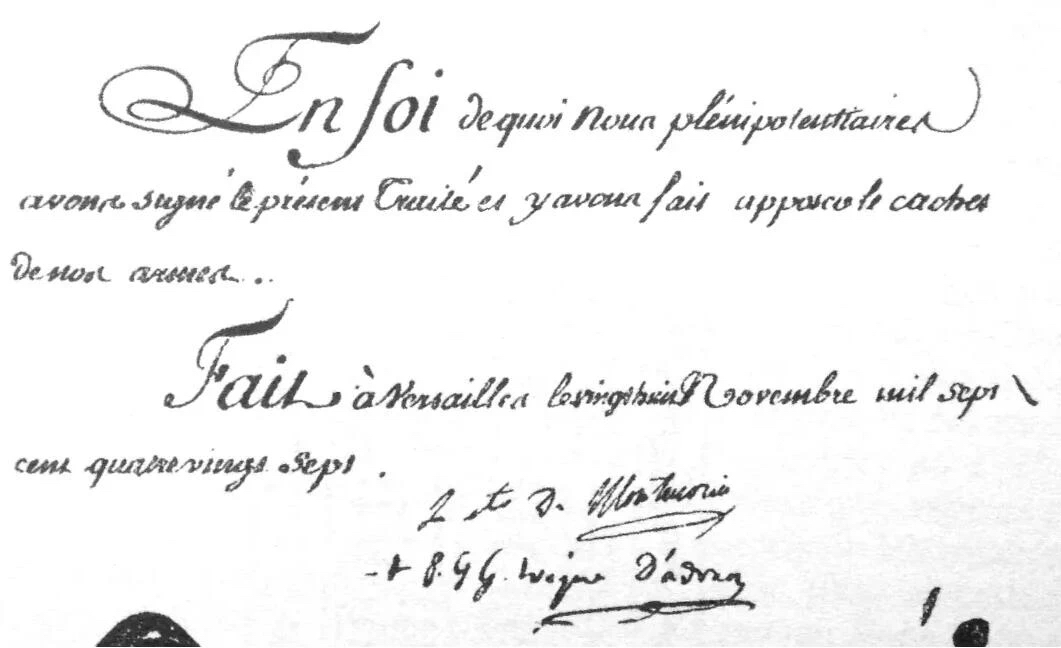 En foi de quoi nous plénipotentiaires
avons signé le présent Traité et y avons fait apposer le cachet
de nos armes..
Fait à Versailles le vingt huit Novembre mil sept
cent quatre vingt sept.
L cte D. Montmorin
+ P. G G. évêque D'adran